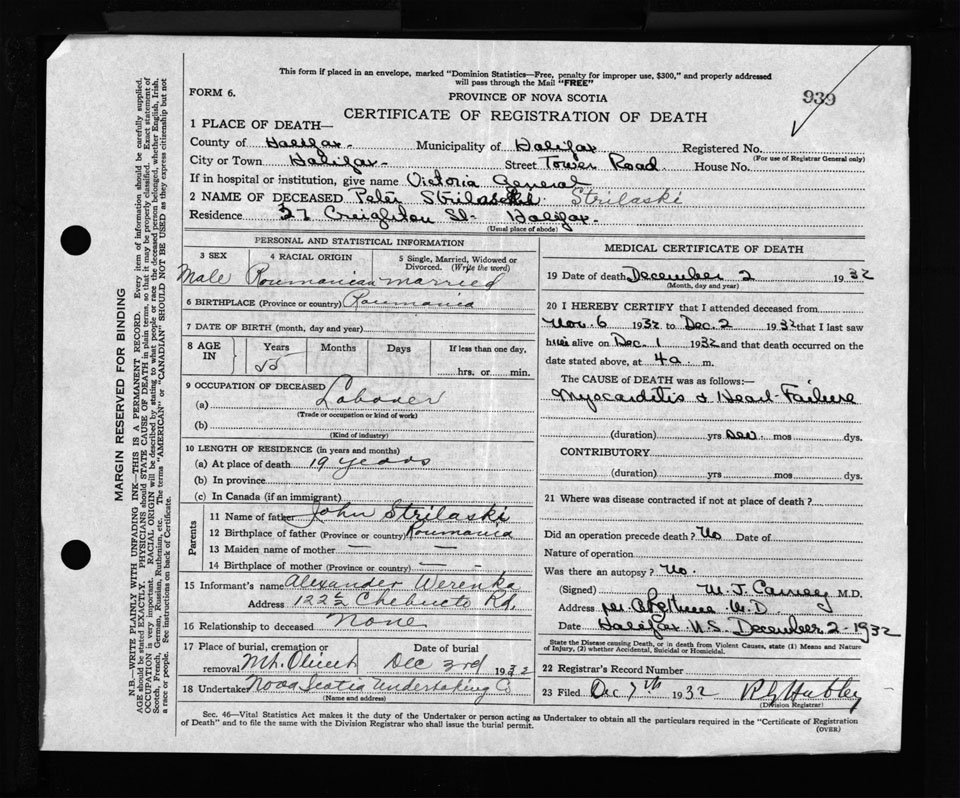 This form if placed in an envelope, marked "Dominion Statistics—Free, penalty for improper use, $300," and properly addressed
will pass through the Mail "FREE"
FORM 6.
PROVINCE OF NOVA SCOTIA
939
CERTIFICATE OF REGISTRATION OF DEATH
1 PLACE OF DEATH—
County of Halifax Municipality of Halifax Registered No.
(For use of Registrar General only)
City or Town Halifax Street Tower Road House No.
If in hospital or institution, give name Victoria General
2 NAME OF DECEASED Peter Strilaski
Residence 27 Creighton St. Halifax.
(Usual place of abode)
PERSONAL AND STATISTICAL INFORMATION
3 SEX 4 RACIAL ORIGIN 5 Single, Married, Widowed or Divorced. (Write the word)
Male Roumanian married
6 BIRTHPLACE (Province or country) Roumania
7 DATE OF BIRTH (month, day and year)
8 AGE IN Years Months Days If less than one day,
55 hrs. or min.
9 OCCUPATION OF DECEASED
(a) Laborer
(Trade or occupation or kind of work)
(b)
(Kind of industry)
10 LENGTH OF RESIDENCE (in years and months)
(a) At place of death 19 years
(b) In province
(c) In Canada (if an immigrant)
Parents
11 Name of father John Strilaski
12 Birthplace of father (Province or country) Roumania
13 Maiden name of mother — —
14 Birthplace of mother (Province or country) — -
15 Informant's name Alexander Werenka
Address 122 1/2 Chebucto Rd.
16 Relationship to deceased None
17 Place of burial, cremation or removal Mt. Olivet Date of burial Dec 3rd 1932
18 Undertaker Nova Scotia Undertaking Co
(Name and address)
MEDICAL CERTIFICATE OF DEATH
19 Date of death December 2 1932
(Month, day and year)
20 I HEREBY CERTIFY that I attended deceased from
Nov. 6 1932 to Dec. 2 1932 that I last saw
him alive on Dec. 1 1932 and that death occurred on the
date stated above, at 4 a. m.
The CAUSE OF DEATH was as follows:—
Myocarditis & Heart Failure
(duration) yrs mos dys.
CONTRIBUTORY
(duration) yrs mos dys.
21 Where was disease contracted if not at place of death?
Did an operation precede death? No Date of
Nature of operation
Was there an autopsy? No.
(Signed) W. J. M.D.
Address per M.D.
Date Halifax N.S. December 2 - 1932
State the Disease causing Death, or in death from Violent Causes, state (1) Means and Nature of Injury, (2) whether Accidental, Suicidal or Homicidal.
22 Registrar's Record Number
23 Filed Dec 7th 1932 Hubley
(Division Registrar)
Sec. 46—Vital Statistics Act makes it the duty of the Undertaker or person acting as Undertaker to obtain all the particulars required in the "Certificate of Registration
of Death" and to file the same with the Division Registrar who shall issue the burial permit.
(OVER)
MARGIN RESERVED FOR BINDING
N.B.—WRITE PLAINLY WITH UNFADING INK—THIS IS A PERMANENT RECORD. Every item of information should be carefully supplied.
AGE should be stated EXACTLY. PHYSICIANS should STATE CAUSE OF DEATH in plain terms, so that it may be properly classified. Exact statement of
OCCUPATION is very important. RACIAL ORIGIN will be described by stating to what people or race the deceased person belonged, whether English, Irish,
Scotch, French, German, Russian, Ruthenian, etc. The terms "AMERICAN" or "CANADIAN" SHOULD NOT BE USED as they express citizenship but not
a race or people. See instructions on back of Certificate.